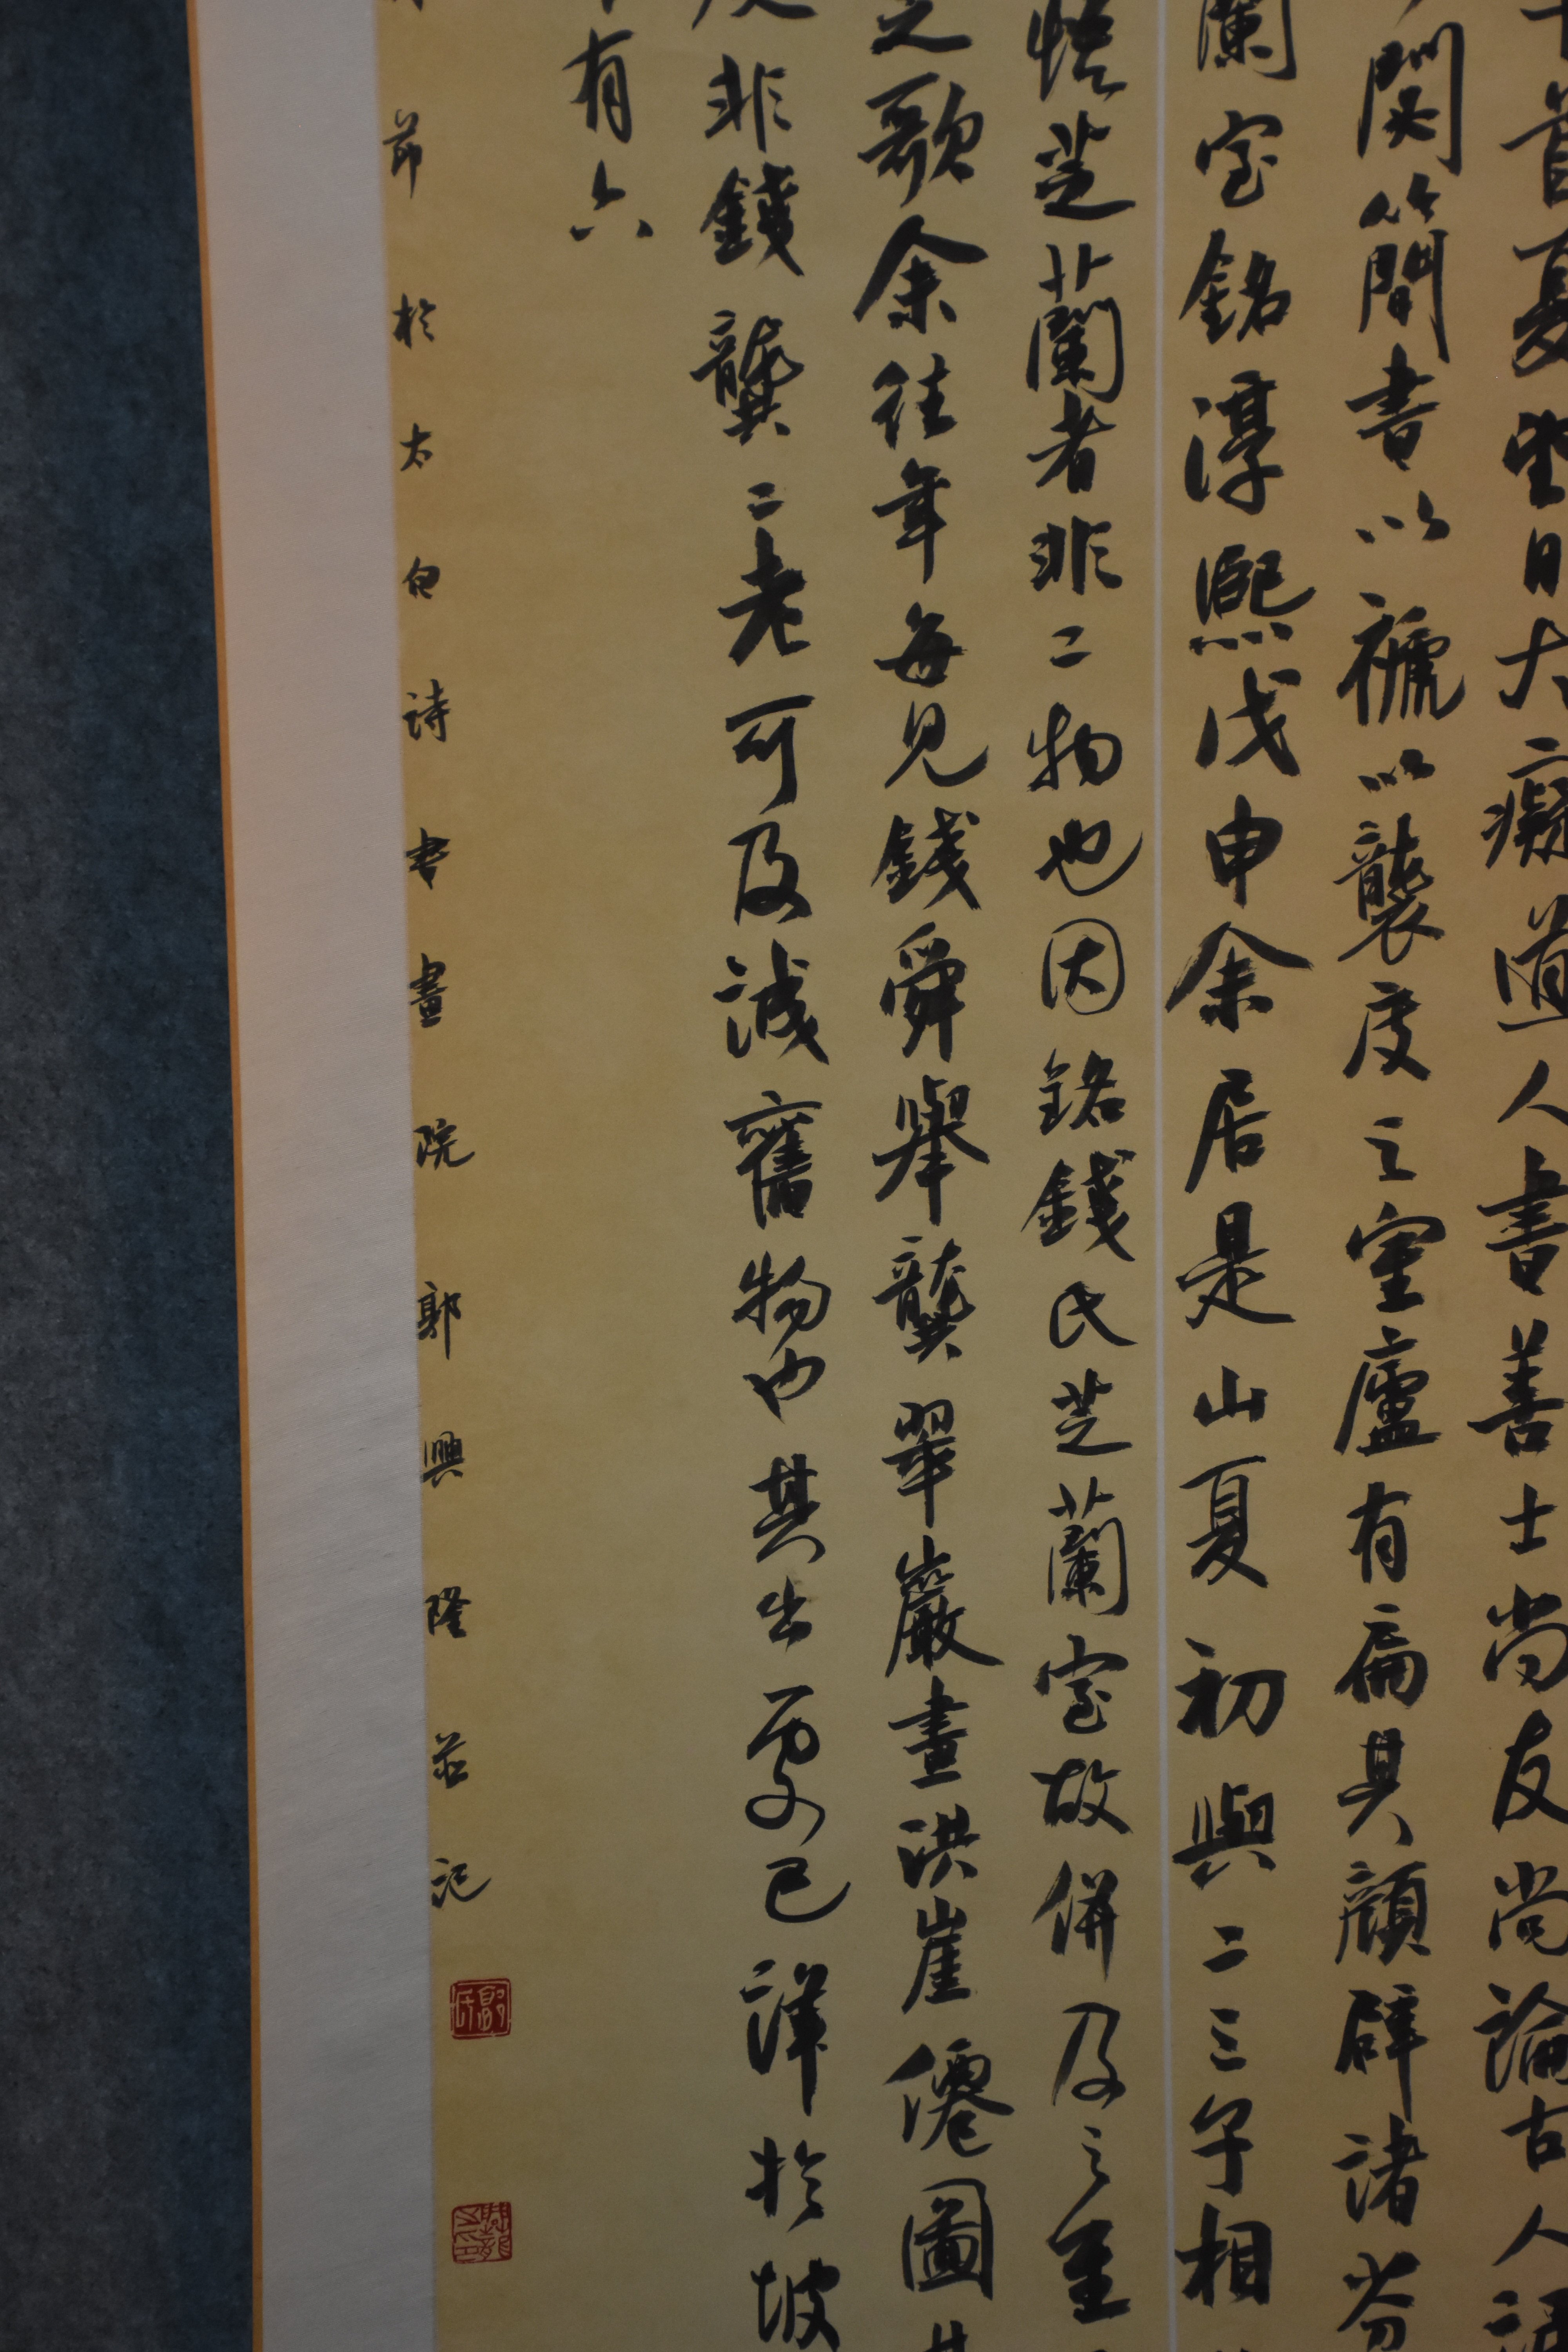 首夏望日大癡道人書善士尚友尚論古人
閑簡書以褫以襲度之室廬有扁其顏辟諸芬
蘭室銘淳熙戊申余居是山夏初與二三子相
悟芝蘭者非二物也因銘錢氏芝蘭室故併及之至
之歌余往年每見錢舜舉龔翠巖畫洪崖僊圖其
非錢龔二老可及誠舊物也其出處已詳於坡
有六
節於太白詩書畫院郭興隆並記